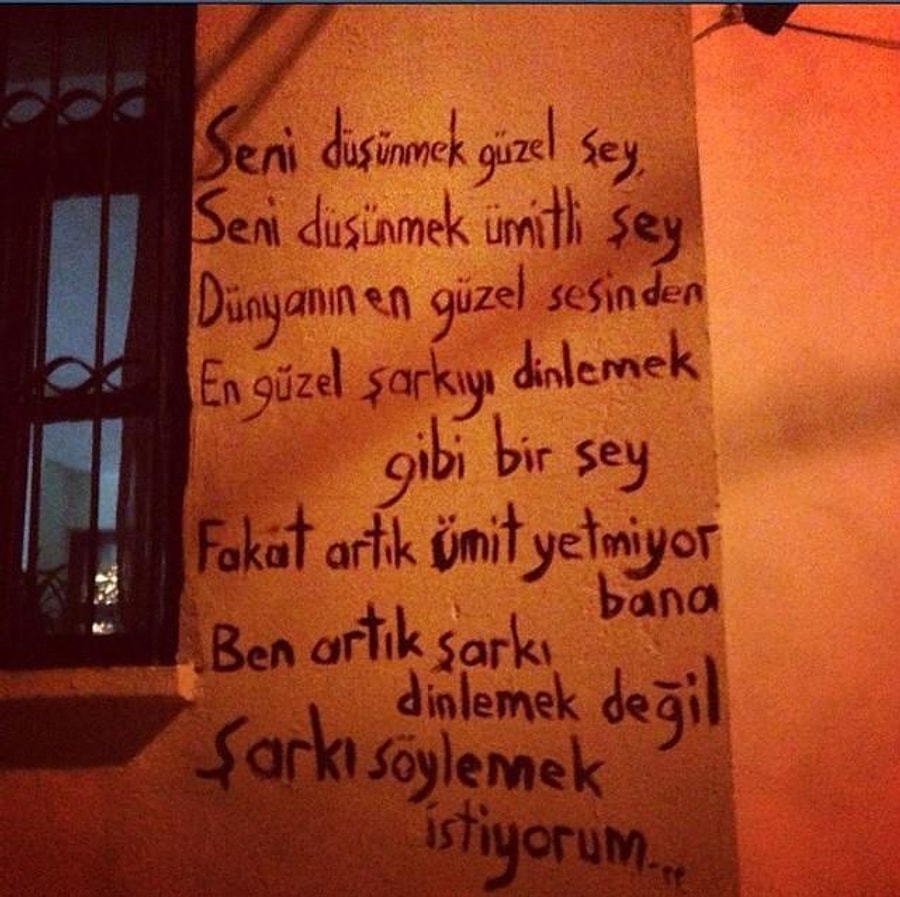 Seni düşünmek güzel şey,
Seni düşünmek ümitli şey
Dünyanın en güzel sesinden
En güzel şarkıyı dinlemek
gibi bir şey
Fakat artık ümit yetmiyor
bana
Ben artık şarkı
dinlemek değil
Şarkı söylemek
istiyorum...